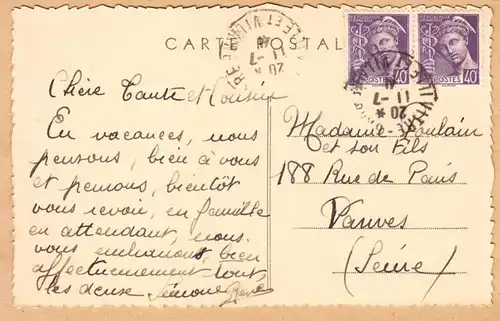 CARTE POSTALE
POSTES 40
POSTES 40
20 *
11 -7
20 *
11 -7
Chère Tante et Cousin
En vacances, nous
pensons, bien à vous
et pensons, bientôt
vous revoir, en famille
en attendant, nous
vous embrassons bien
affectueusement tout,
les deux Simone René
Madame Poulain
et son Fils
188 Rue de Paris
Vanves
(Seine)